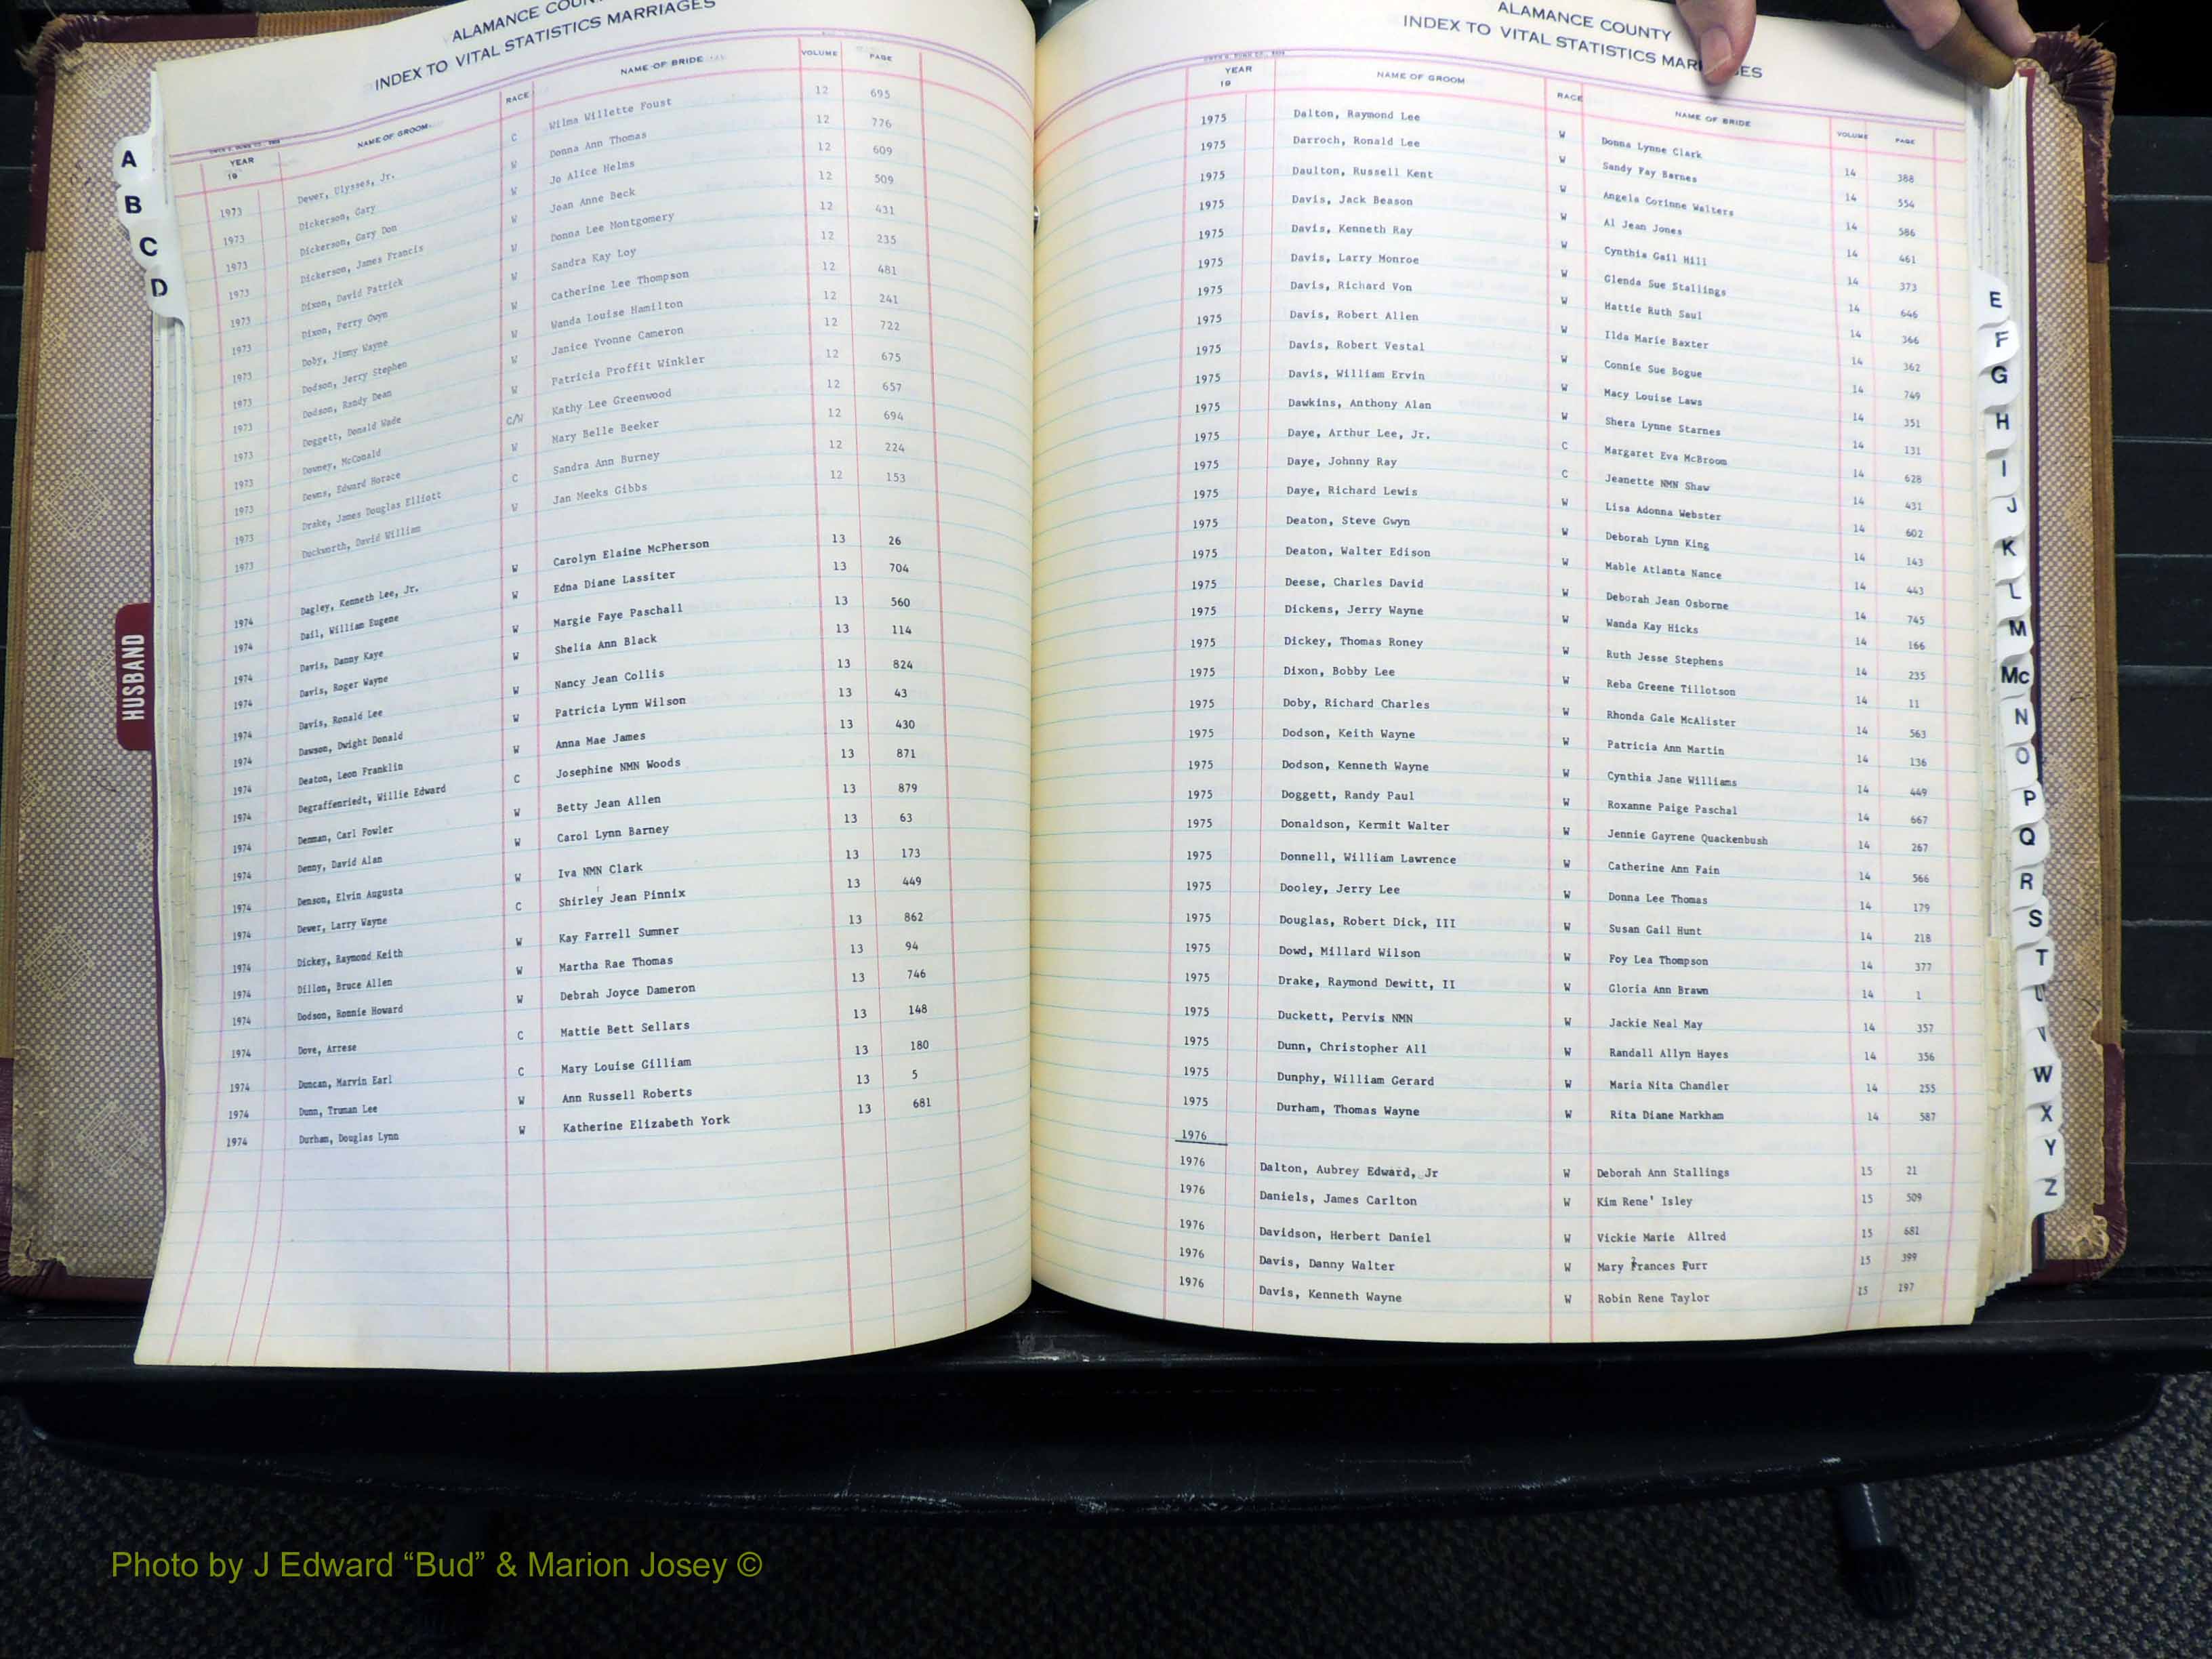 ALAMANCE COUN
INDEX TO VITAL STATISTICS MARRIAGES
YEAR 19 NAME OF GROOM RACE NAME OF BRIDE VOLUME PAGE
1973 Dewer, Ulysses, Jr. C Wilma Willette Foust 12 695
1973 Dickerson, Gary W Donna Ann Thomas 12 776
1973 Dickerson, Gary Don W Jo Alice Helms 12 609
1973 Dickerson, James Francis W Joan Anne Beck 12 509
1973 Dixon, David Patrick W Donna Lee Montgomery 12 431
1973 Dixon, Perry Gwyn W Sandra Kay Loy 12 235
1973 Doby, Jimmy Wayne Catherine Lee Thompson 12 481
1973 Dodson, Jerry Stephen W Wanda Louise Hamilton 12 241
1973 Dodson, Randy Dean W Janice Yvonne Cameron 12 722
1973 Doggett, Donald Wade W Patricia Proffit Winkler 12 675
1973 Downey, McConald C/W Kathy Lee Greenwood 12 657
1973 Downs, Edward Horace W Mary Belle Beeker 12 694
1973 Drake, James Douglas Elliott C Sandra Ann Burney 12 224
1973 Duckworth, David William W Jan Meeks Gibbs 12 153
1974 Dagley, Kenneth Lee, Jr. W Carolyn Elaine McPherson 13 26
1974 Dail, William Eugene W Edna Diane Lassiter 13 704
1974 Davis, Danny Kaye W Margie Faye Paschall 13 560
1974 Davis, Roger Wayne W Shelia Ann Black 13 114
1974 Davis, Ronald Lee W Nancy Jean Collis 13 824
1974 Dawson, Dwight Donald W Patricia Lynn Wilson 13 43
1974 Deaton, Leon Franklin W Anna Mae James 13 430
1974 Degraffenriedt, Willie Edward C Josephine NMN Woods 13 871
1974 Denman, Carl Fowler W Betty Jean Allen 13 879
1974 Denny, David Alan W Carol Lynn Barney 13 63
1974 Denson, Elvin Augusta W Iva NMN Clark 13 173
1974 Dewer, Larry Wayne C Shirley Jean Pinnix 13 449
1974 Dickey, Raymond Keith W Kay Farrell Sumner 13 862
1974 Dillon, Bruce Allen W Martha Rae Thomas 13 94
1974 Dodson, Ronnie Howard W Debrah Joyce Dameron 13 746
1974 Dove, Arrese C Mattie Bett Sellars 13 148
1974 Duncan, Marvin Earl C Mary Louise Gilliam 13 180
1974 Dunn, Truman Lee W Ann Russell Roberts 13 5
1974 Durham, Douglas Lynn W Katherine Elizabeth York 13 681
A
B
C
D
HUSBAND
ALAMANCE COUNTY
INDEX TO VITAL STATISTICS MAR ES
YEAR 19 NAME OF GROOM RACE NAME OF BRIDE VOLUME PAGE
1975 Dalton, Raymond Lee W Donna Lynne Clark 14 388
1975 Darroch, Ronald Lee W Sandy Fay Barnes 14 554
1975 Daulton, Russell Kent W Angela Corinne Walters 14 586
1975 Davis, Jack Beason W Al Jean Jones 14 461
1975 Davis, Kenneth Ray W Cynthia Gail Hill 14 373
1975 Davis, Larry Monroe W Glenda Sue Stallings 14 646
1975 Davis, Richard Von W Hattie Ruth Saul 14 366
1975 Davis, Robert Allen W Ilda Marie Baxter 14 362
1975 Davis, Robert Vestal W Connie Sue Bogue 14 749
1975 Davis, William Ervin W Macy Louise Laws 14 351
1975 Dawkins, Anthony Alan W Shera Lynne Starnes 14 131
1975 Daye, Arthur Lee, Jr. C Margaret Eva McBroom 14 628
1975 Daye, Johnny Ray C Jeanette NMN Shaw 14 431
1975 Daye, Richard Lewis W Lisa Adonna Webster 14 602
1975 Deaton, Steve Gwyn W Deborah Lynn King 14 143
1975 Deaton, Walter Edison W Mable Atlanta Nance 14 443
1975 Deese, Charles David W Deborah Jean Osborne 14 745
1975 Dickens, Jerry Wayne W Wanda Kay Hicks 14 166
1975 Dickey, Thomas Roney W Ruth Jesse Stephens 14 235
1975 Dixon, Bobby Lee W Reba Greene Tillotson 14 11
1975 Doby, Richard Charles W Rhonda Gale McAlister 14 563
1975 Dodson, Keith Wayne W Patricia Ann Martin 14 136
1975 Dodson, Kenneth Wayne W Cynthia Jane Williams 14 449
1975 Doggett, Randy Paul W Roxanne Paige Paschal 14 667
1975 Donaldson, Kermit Walter W Jennie Gayrene Quackenbush 14 267
1975 Donnell, William Lawrence W Catherine Ann Fain 14 566
1975 Dooley, Jerry Lee W Donna Lee Thomas 14 179
1975 Douglas, Robert Dick, III W Susan Gail Hunt 14 218
1975 Dowd, Millard Wilson W Foy Lea Thompson 14 377
1975 Drake, Raymond Dewitt, II W Gloria Ann Brawn 14 1
1975 Duckett, Pervis NMN W Jackie Neal May 14 357
1975 Dunn, Christopher All W Randall Allyn Hayes 14 356
1975 Dunphy, William Gerard W Maria Nita Chandler 14 255
1975 Durham, Thomas Wayne W Rita Diane Markham 14 587
1976
1976 Dalton, Aubrey Edward, Jr W Deborah Ann Stallings 15 21
1976 Daniels, James Carlton W Kim Rene' Isley 15 509
1976 Davidson, Herbert Daniel W Vickie Marie Allred 15 681
1976 Davis, Danny Walter W Mary Frances Furr 15 399
1976 Davis, Kenneth Wayne W Robin Rene Taylor 15 197
E
F
G
H
I
J
K
L
M
Mc
N
O
P
Q
R
S
T
U
V
W
X
Y
Z
Photo by J Edward “Bud” & Marion Josey ©